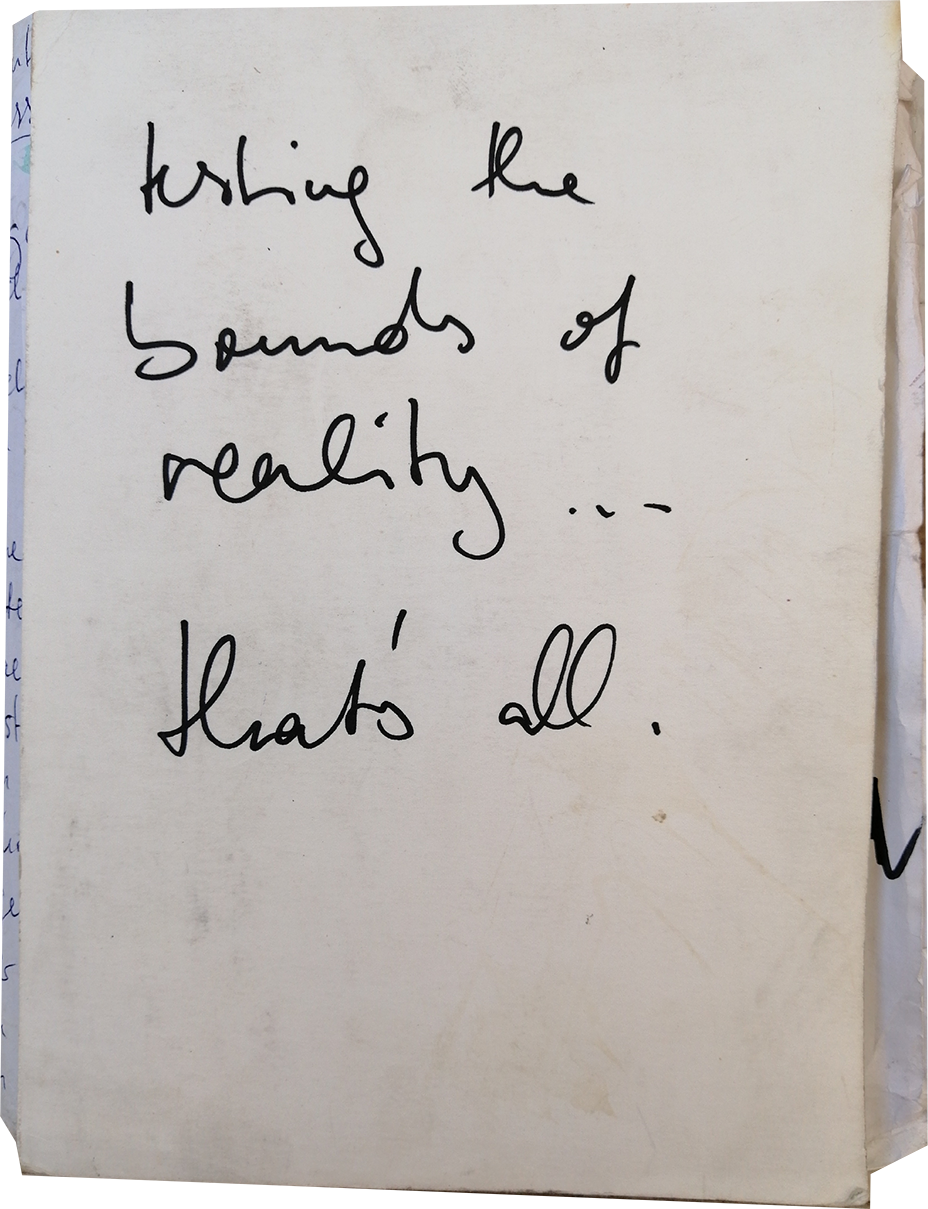 testing the
bounds of
reality ...
that's all.